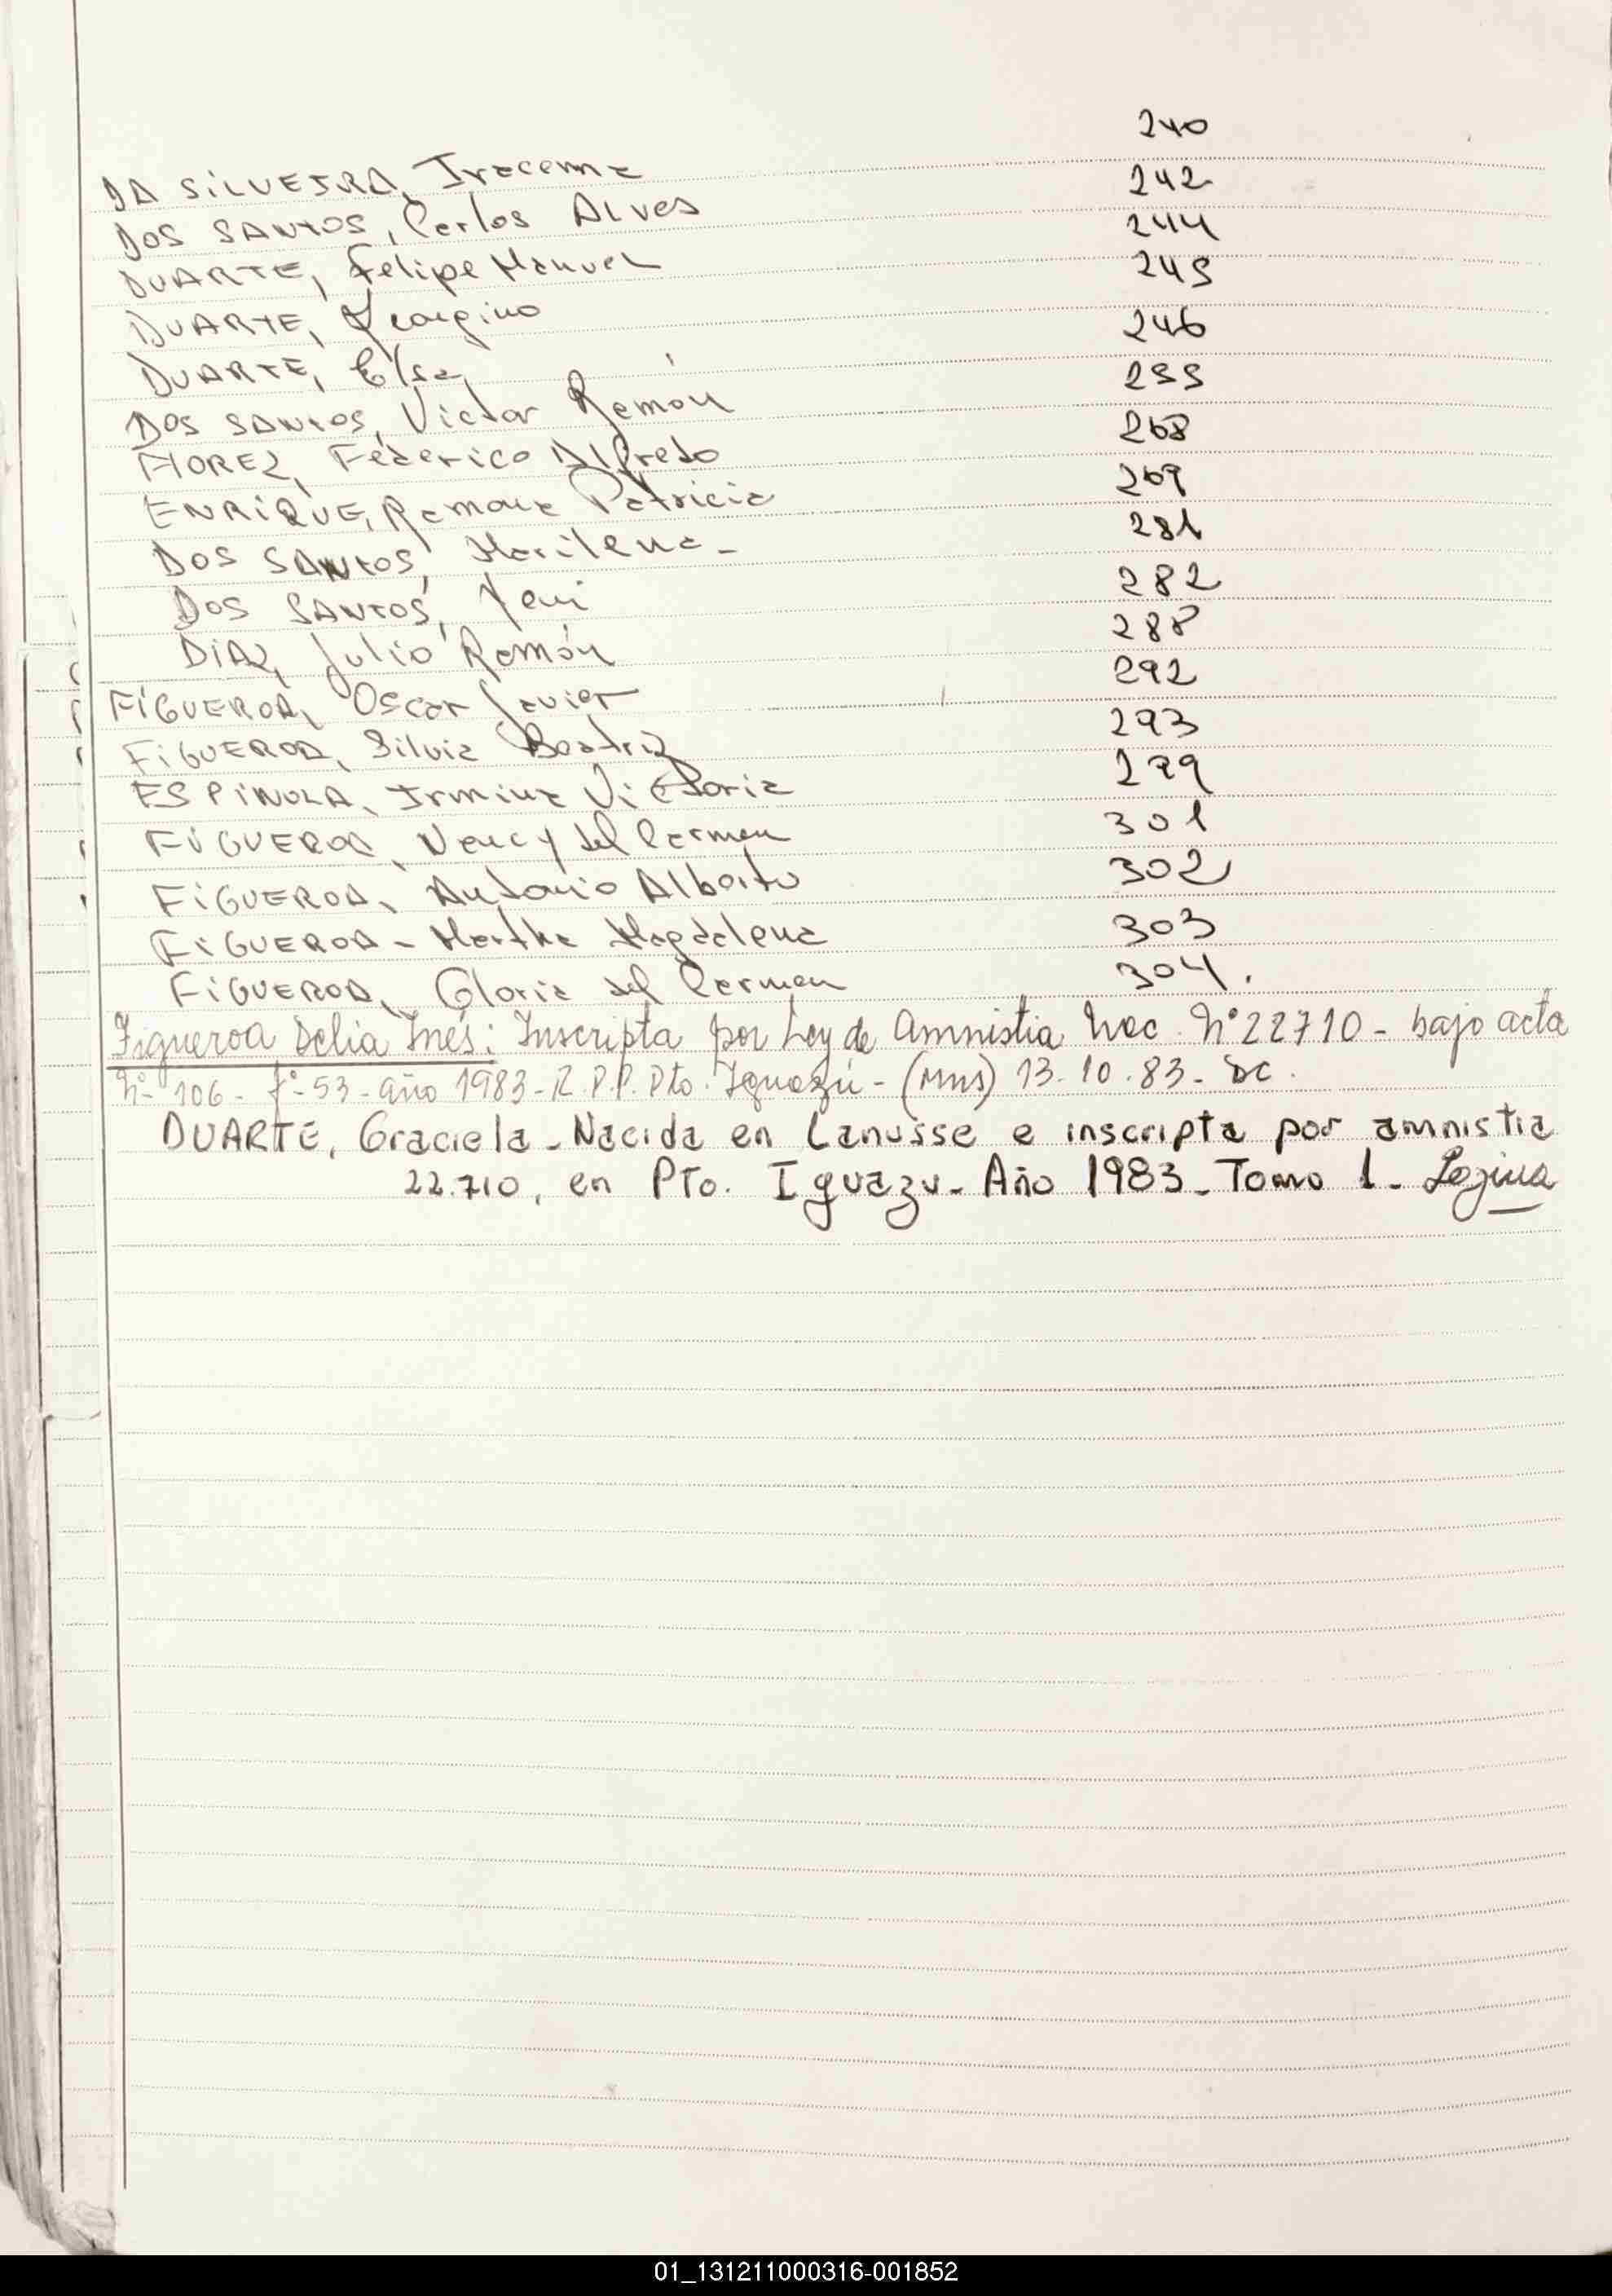 DA SILVEIRA, Iracema 240
DOS SANTOS, Carlos ALVES 242
DUARTE, Felipe Manuel 244
DUARTE, 245
DUARTE, Elsa 246
DOS SANTOS, Victor Ramón 255
FLOREZ, Federico Alfredo 268
ENRIQUE, Ramona Patricia 269
DOS SANTOS, Marilena - 281
DOS SANTOS, 282
DIAZ, Julio Ramón 288
FIGUEROA, Oscar Javier 292
FIGUEROA, Silvia Beatriz 293
ESPINOLA, Irmina Victoria 299
FIGUEROA, Nancy del Carmen 301
FIGUEROA, Antonio Alberto 302
FIGUEROA - Martha Magdalena 303
FIGUEROA, Gloria del Carmen 304.
Figueroa Delia Inés: Inscripta por Ley de Amnistia Nac. N° 22710 - bajo acta
N° 106 - f° 53 - año 1983 - R.P.P. Pto. Iguazú - (Mns) 13.10.83 - DC.
DUARTE, Graciela - Nacida en Lanusse e inscripta por amnistia
22.710, en Pto. Iguazu - Año 1983 - Tomo 1 -
01_131211000316-001852